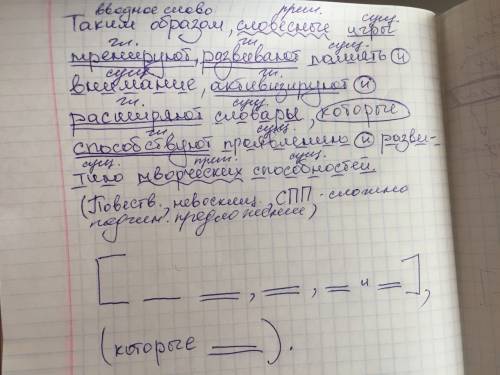 вводное слово прил. сущ.
Таким образом, словесные игры
гл. гл. сущ.
тренируют, развивают память и
сущ. гл.
внимание, активизируют и
гл. сущ.
расширяют словарь, которые
гл. сущ.
способствуют проявлению и разви-
сущ. прил. сущ.
тию творческих способностей.
(Повеств., невосклиц., СПП - сложно
подчин. предложение)
[ и ],
(которые ).